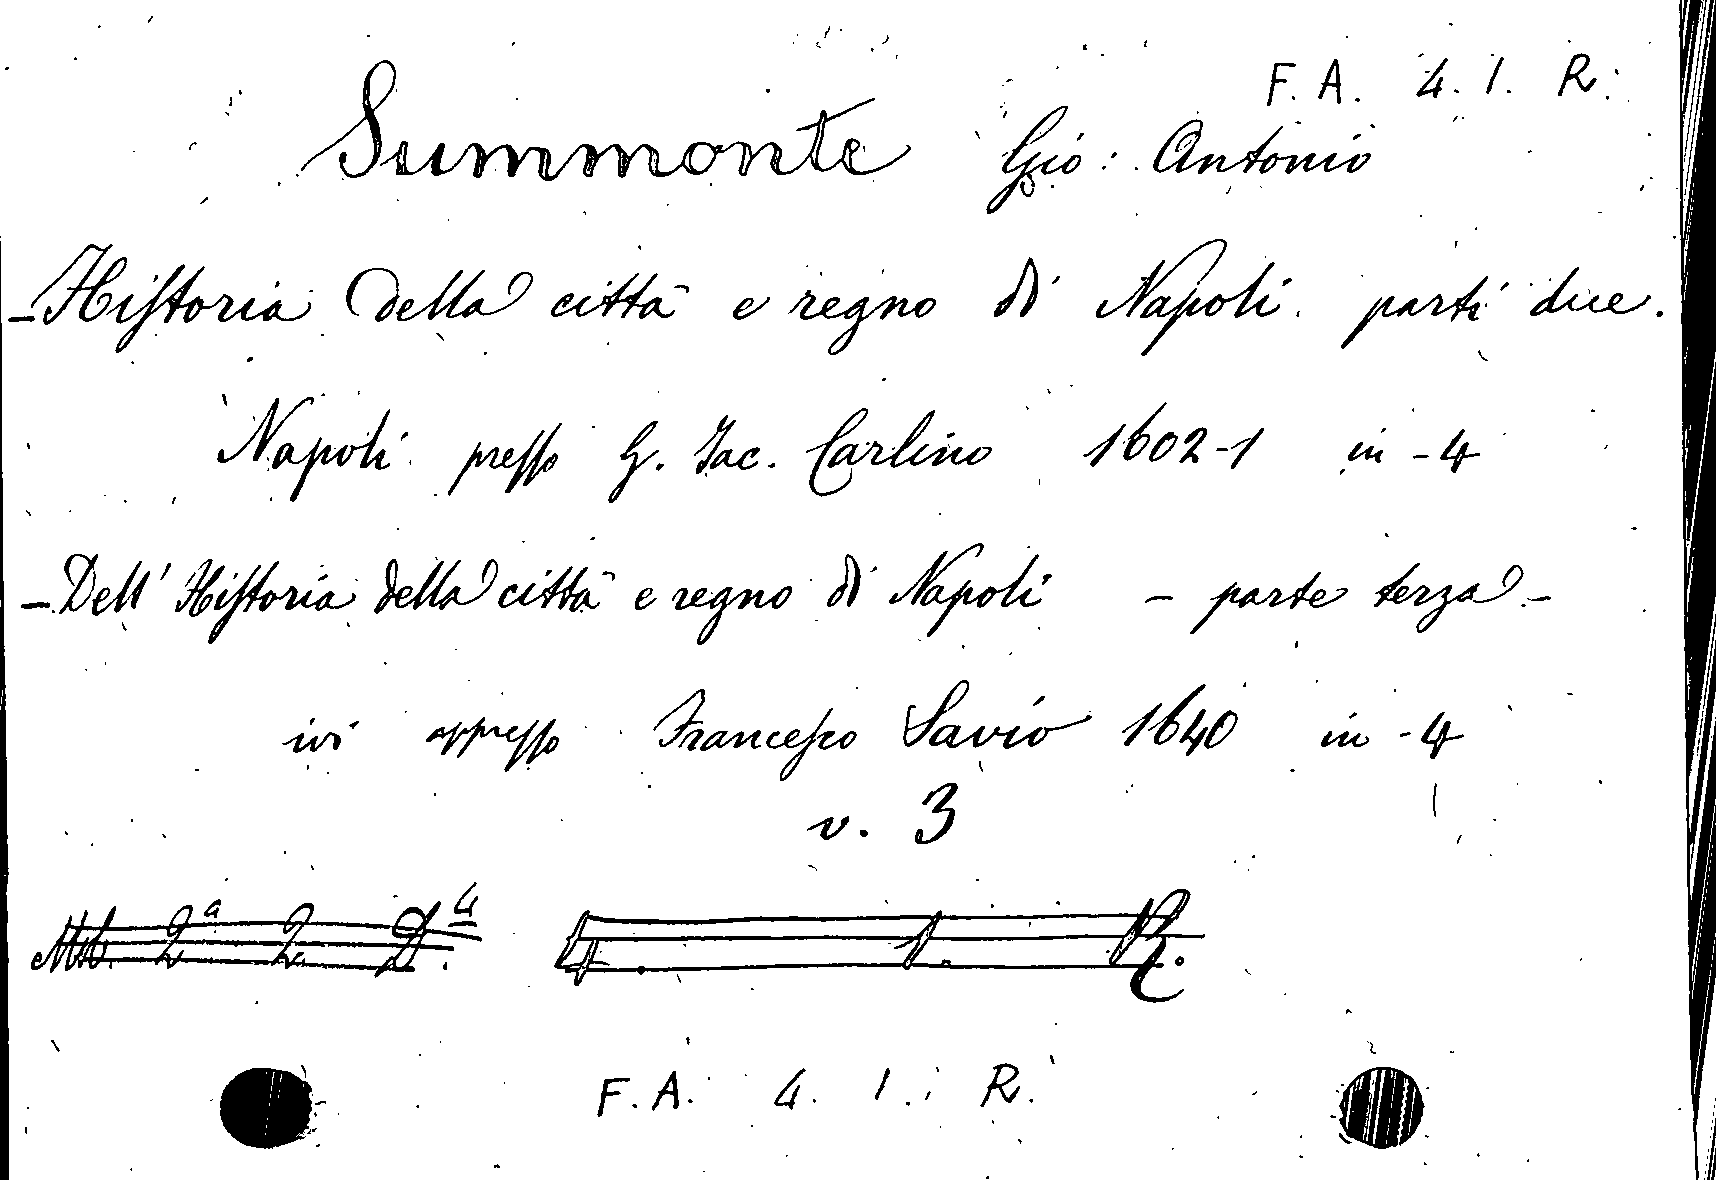 F. A. 4. 1. R.
Summonte Gio: Antonio
- Hiſtoria della città e regno di Napoli. parti due.
Napoli preſſo G. Jac. Carlino 1602-1 in-4
- Dell' Hiſtoria della città e regno di Napoli - parte terza -
ivi appreſſo Franceſco Savio 1640 in-4
v. 3
2ª 2. D.4 4. 1. R.
F. A. 4. 1. R.